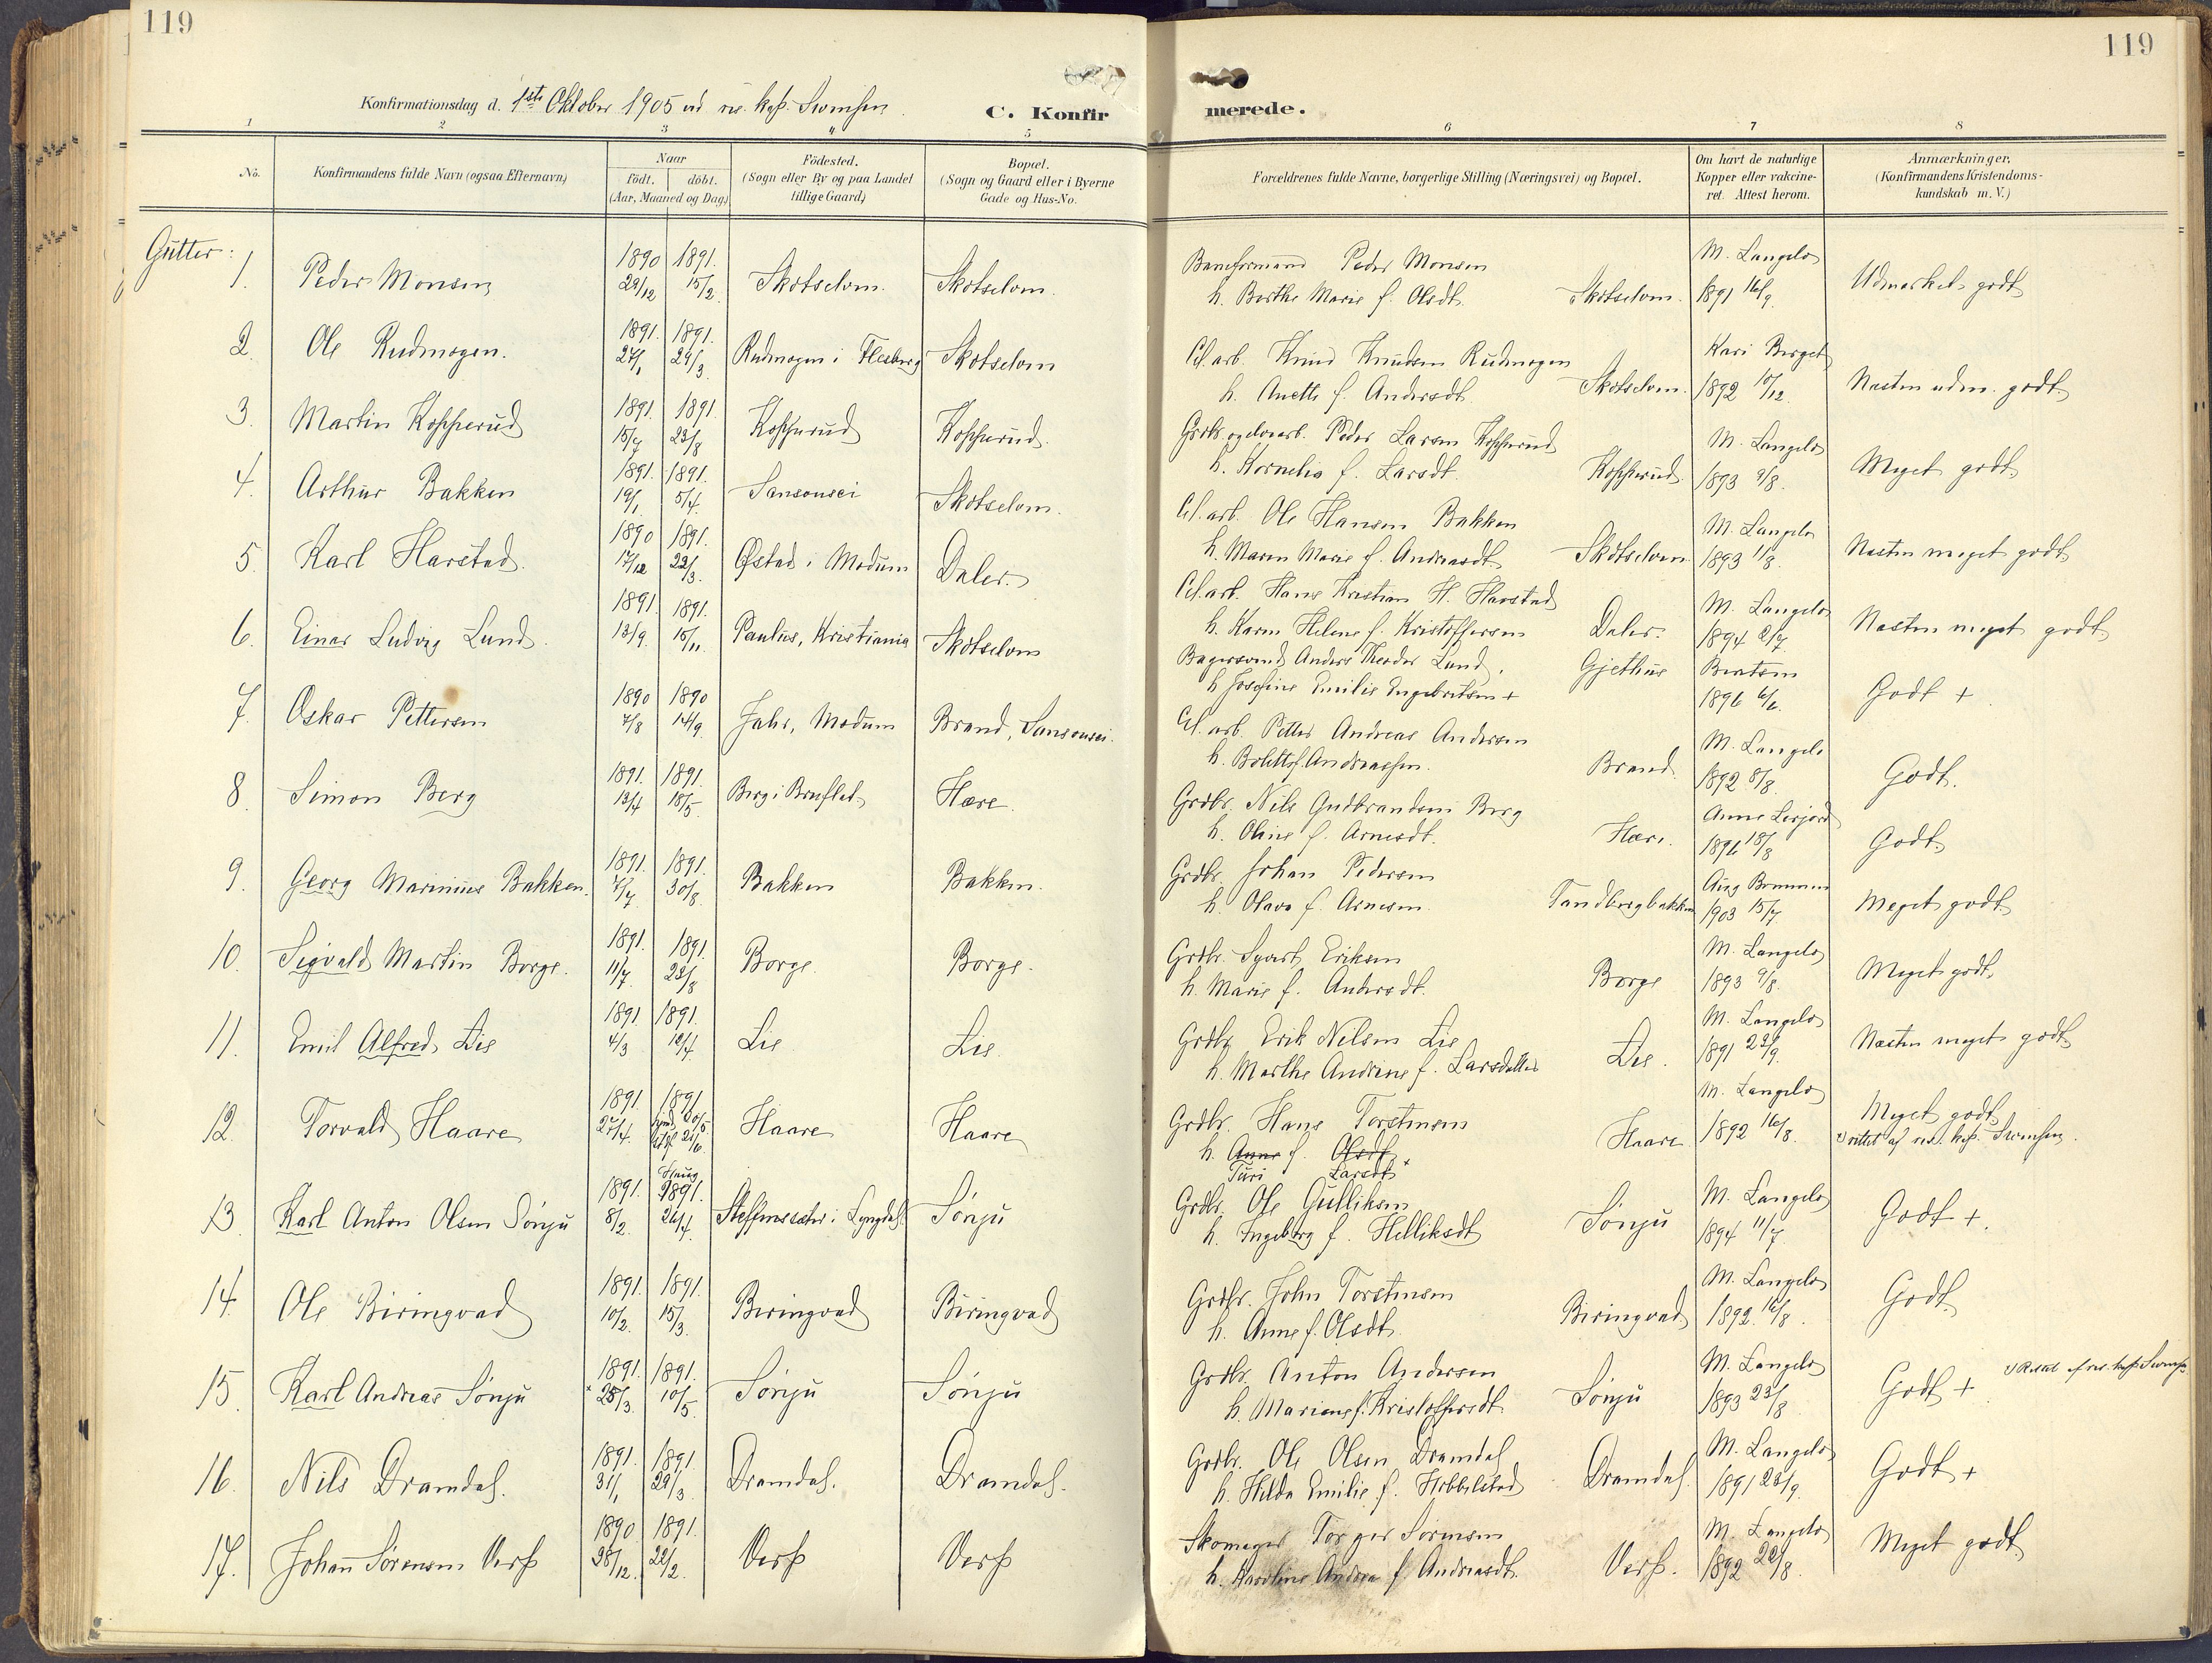 119
119
Konfirmationsdag d. 1ste Oktober 1905 ved res. kap. Svensen
C. Konfirmerede.
1 2 3 4 5 6 7 8
No.
Konfirmandens fulde Navn (ogsaa Efternavn)
Naar
födt. döbt.
(Aar, Maaned og Dag)
Födested.
(Sogn eller By og paa Landet
tillige Gaard)
Bopæl.
(Sogn og Gaard eller i Byerne
Gade og Hus-No.
Forældrenes fulde Navne, borgerlige Stilling (Næringsvei) og Bopæl.
Om havt de naturlige
Kopper eller vakcine-
ret. Attest herom.
Anmærkninger.
(Konfirmandens Kristendoms-
kundskab m. V.)
Gutter:
1. Peder Monsen 1890 29/12 1891. 15/2. Skotselven. Skotselven. Baneformand Peder Monsen
h. Berthe Marie f. Olsdt. Skotselven. M. Langelo 1891 16/9. Udmærket godt
2. Ole Rudmogen. 1891. 27/1 1891. 29/3. Rudmogen i Flesberg Skotselven Cel. arb. Knud Knudsen Rudmogen
h. Anette f. Andersdt. Skotselven. Kari Berget 1892 10/12. Næsten udm. godt
3. Martin Kopperud 1891. 15/7 1891. 23/8 Kopperud Kopperud. Grdbr. og elvearb. Peder Larsen Kopperud
h. Kornelia f. Larsdt. Kopperud M. Langelo 1893 9/8. Meget godt
4. Arthur Bakken 1891. 19/1. 1891. 5/4. Sansousei Skotselven. Cel. arb. Ole Hansen Bakken
h. Maren Marie f. Andreasdt. Skotselven M. Langelo 1893 11/8. Næsten meget godt
5. Karl Harstad. 1890 17/12 1891. 22/3. Østad i Modum Daler. Cel. arb. Hans Kristian H. Harstad
h. Karen Helene f. Kristoffersen Daler. M. Langelo 1894 2/7. Næsten meget godt
6. Einar Ludvig Lund. 1891. 13/9. 1891. 15/11. Paulus, Kristiania Skotselven Bagersvend Anders Theodor Lund,
h. Josefine Emilie Engebretsen + Gjethus Berntsen 1896 6/6. Godt +
7. Oskar Pettersen 1890 7/8 1890 14/9. Jahr, Modum Brand, Sansousei. Cel. arb. Petter Andreas Andersen
h. Bolette f. Andreassen. Brand. M. Langelo 1892 8/8. Godt.
8. Simon Berg 1891. 13/4 1891. 18/5. Berg i Bruflat Hære. Grdbr. Nils Gudbrandsen Berg
h. Oline f. Arnesdt. Hære. 1896 18/8 Godt
9. Georg Marinius Bakken. 1891. 7/7 1891. 30/8. Bakken Bakken. Grdbr. Johan Pedersen
h. Olava f. Arnesen. Tandbergbakken 1903 15/7 Meget godt
10. Sigvald Martin Borge. 1891. 11/7. 1891. 23/8 Borge. Borge. Grdbr. Syvert Eriksen
h. Marie f. Andersdt. Borge M. Langelo 1893 9/8. Meget godt.
11. Emil Alfred Lie 1891. 4/3 1891. 12/4. Lie Lie. Grdbr. Erik Nilsen Lie
h. Marthe Andrine f. Larsdatter Lie. M. Langelo 1891 23/9. Næsten meget godt
12. Torvald Haare 1891. 27/4. 1891 Haare Haare Grdbr. Hans Torstensen
h. Anne f. Olsdt.
Turi Larsdt + Haare M. Langelo 1892 16/8. Meget godt
rettet af res. kap. Svensen.
13. Karl Anton Olsen Sønju 1891. 8/2. Haug 1891. 26/4. Steffensæter i Lyngdal Sønju Grdbr. Ole Gulliksen
h. Ingeborg f. Helliksdt Sønju M. Langelo 1894 11/7. Godt +.
14. Ole Biringvad 1891. 10/2. 1891. 15/3. Biringvad Biringvad Grdbr. John Torstensen
h. Anne f. Olsdt. Biringvad M. Langelo 1892. 16/8. Godt
15. Karl Andreas Sønju 1891. 28/3. 1891. 10/5. Sønju Sønju Grdbr. Anton Andersen
h. Mariane f. Kristoffersdt. Sønju M. Langelo 1893 23/8 Godt + Rettet af res. kap. Svensen
16. Nils Dramdal. 1891. 31/1 1891 29/3. Dramdal. Dramdal. Grdbr. Ole Olsen Dramdal
h. Hilda Emilie f. Hobbelstad Dramdal. M. Langelo 1891 23/9. Godt +
17. Johan Sørensen Verp 1890 28/12. 1891. 22/2. Verp Verp Skomager Torger Sørensen
h. Karoline Andrea f. Andreasdt. Verp. M. Langelo 1892 22/8. Meget godt